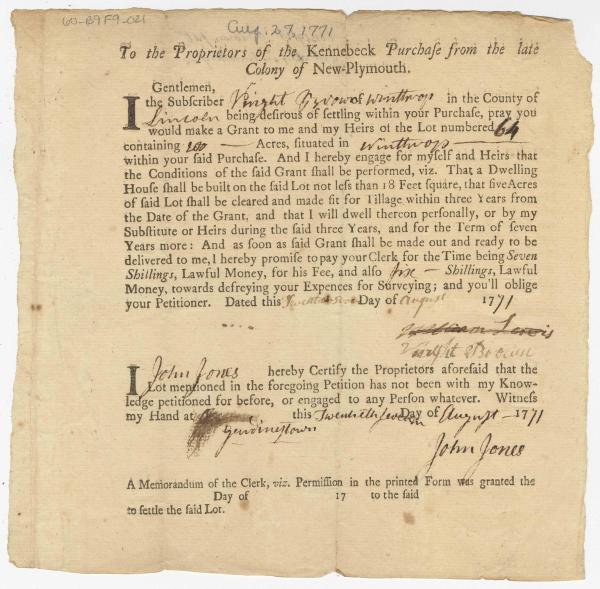 60-B9F9-021
Aug. 27, 1771
To the Proprietors of the Kennebeck Purchase from the late
Colony of New-Plymouth.
Gentlemen,
I the Subscriber of Winthrop in the County of
Lincoln being desirous of settling within your Purchase, pray you
would make a Grant to me and my Heirs of the Lot numbered 64
containing 200 — Acres, situated in Winthrop —
within your said Purchase. And I hereby engage for myself and Heirs that
the Conditions of the said Grant shall be performed, viz. That a Dwelling
House shall be built on the said Lot not less than 18 Feet square, that five Acres
of said Lot shall be cleared and made fit for Tillage within three Years from
the Date of the Grant, and that I will dwell thereon personally, or by my
Substitute or Heirs during the said three Years, and for the Term of seven
Years more: And as soon as said Grant shall be made out and ready to be
delivered to me, I hereby promise to pay your Clerk for the Time being Seven
Shillings, Lawful Money, for his Fee, and also — Shillings, Lawful
Money, towards defreying your Expences for Surveying; and you'll oblige
your Petitioner. Dated this Day of August 1771
William Lewis
I John Jones hereby Certify the Proprietors aforesaid that the
Lot mentioned in the foregoing Petition has not been with my Know-
ledge petitioned for before, or engaged to any Person whatever. Witness
my Hand at this Twentieth Seven Day of August — 1771
John Jones
A Memorandum of the Clerk, viz. Permission in the printed Form was granted the
Day of 17 to the said
to settle the said Lot.